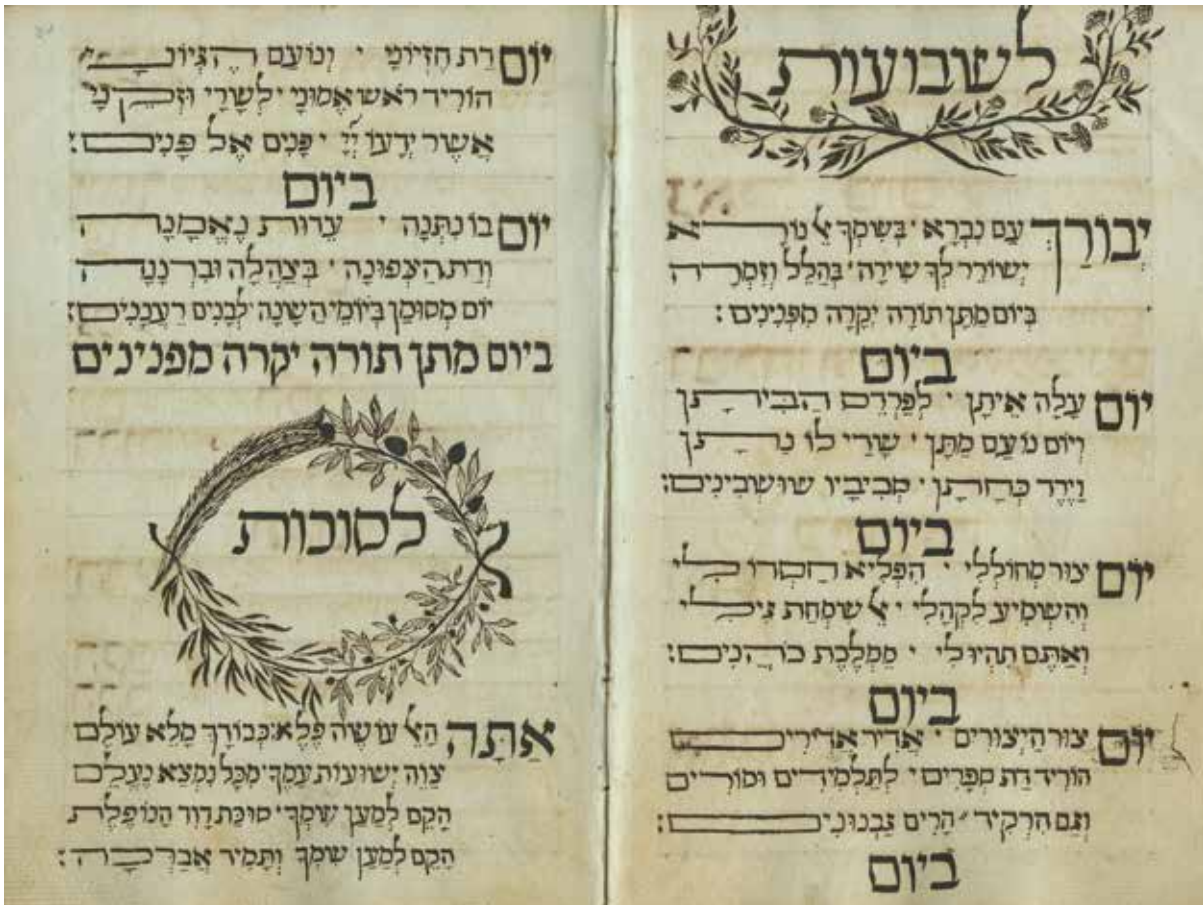 לשבועות
יבורך עם נברא · בשמך אל נורא
ישורר לך שירה · בהלל וזמרה
ביום מתן תורה יקרה מפנינים:
ביום
יום עלה איתן · לפרדס הביתן
ויום נועם מתן · שדי לו נתן
וירד כחתן · סביביו שושבינים:
ביום
יום צור מחוללי · הפליא חסדו לי
והשמיע לקהלי · אל שמחת גילי
ואתם תהיו לי · ממלכת כהנים:
ביום
יום צור היצורים · אדיר אדירים
הוריד דת ספרים · לתלמידים וסורים
וגם הרקיד · הרים גבנונים:
ביום
יום דת חזיוני · ונועם הגיוני
הוריד ראש אמוני · לשרי וזקני
אשר ידעו יי · פנים אל פנים:
ביום
יום בו נתנה · עדות נאמנה
ודת הצפונה · בצהלה וברננה
יום מסומן בימי השנה · לבנים רעננים:
ביום מתן תורה יקרה מפנינים
לסוכות
אתה האל עושה פלא: כבודך מלא עולם
צוה ישועות עמך · מכל נמצא נעלם
הקם למען שמך · סוכת דוד הנופלת
הקם למען שמך ותמיד אברכה: